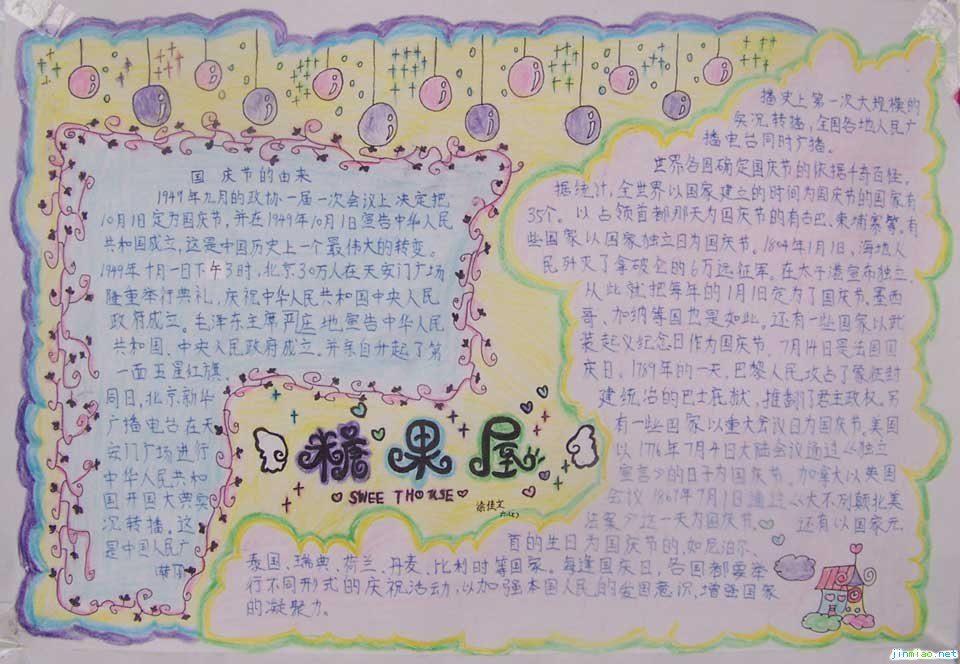 国庆节的由来
1949年九月的政协一届一次会议上决定把
10月1日定为国庆节,并在1949年10月1日宣告中华人民
共和国成立,这是中国历史上一个最伟大的转变。
1949年十月一日下午3时,北京30万人在天安门广场
隆重举行典礼,庆祝中华人民共和国中央人民
政府成立。毛泽东主席严庄地宣告中华人民
共和国、中央人民政府成立。并亲自升起了第
一面五星红旗
同日,北京新华
广播电台在天
安门广场进行
中华人民共和
国开国大典实
况转播。这
是中国人民广
播史上第一次大规模的
实况转播,全国各地人民广
播电台同时广播。
世界各国确定国庆节的依据千奇百怪。
据统计,全世界以国家建立的时间为国庆节的国家有
35个。以占领首都那天为国庆节的有古巴、柬埔寨等。有
些国家以国家独立日为国庆节。1804年1月1日,海地人
民歼灭了拿破仑的6万远征军。在太子港宣布独立,
从此就把每年的1月1日定为了国庆节。墨西
哥、加纳等国也是如此。还有一些国家以武
装起义纪念日作为国庆节。7月14日是法国国
庆日。1789年的一天,巴黎人民攻占了象征封
建统治的巴士底狱,推翻了君主政权。另
有一些国家以重大会议日为国庆节。美国
以1776年7月4日大陆会议通过《独立
宣言》的日子为国庆节。加拿大以英国
会议1867年7月1日通过《大不列颠北美
法案》这一天为国庆节。还有以国家元
首的生日为国庆节的,如尼泊尔、
泰国、瑞典、荷兰、丹麦、比利时等国家。每逢国庆日,各国都要举
行不同形式的庆祝活动,以加强本国人民的爱国意识,增强国家
的凝聚力。
糖果屋
SWEE THOUSE
jinmiao.net